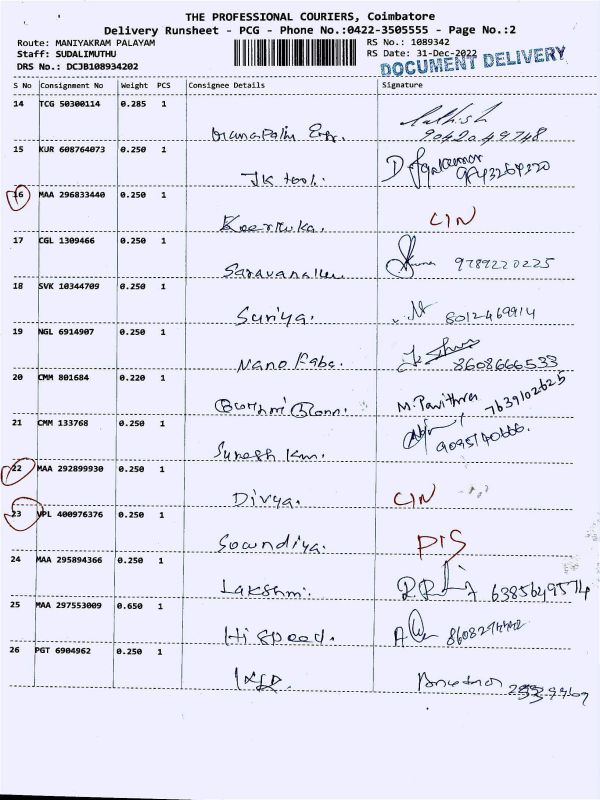 THE PROFESSIONAL COURIERS, Coimbatore
Delivery Runsheet - PCG - Phone No.:0422-3505555 - Page No.:2
Route: MANIYAKRAM PALAYAM RS No.: 1089342
Staff: SUDALIMUTHU RS Date: 31-Dec-2022
DRS No.: DCJB108934202 DOCUMENT DELIVERY
S No Consignment No Weight PCS Consignee Details Signature
14 TCG 50300114 0.285 1
9042049748
15 KUR 608764073 0.250 1
JK tool.
16 MAA 296833440 0.250 1
CIN
17 CGL 1309466 0.250 1
9789220225
18 SVK 10344709 0.250 1
Suriya. 8012469914
19 NGL 6914907 0.250 1
Nano Fabs. 8608666533
20 CMM 801684 0.220 1
M. Pavithra 7639102625
21 CMM 133768 0.250 1
Suresh Km.
22 MAA 292899930 0.250 1
Divya. CIN
23 VPL 400976376 0.250 1
Sowndiya. DIS
24 MAA 295894366 0.250 1
Lakshmi. 6385649574
25 MAA 297553009 0.650 1
Hi speed.
26 PGT 6904962 0.250 1